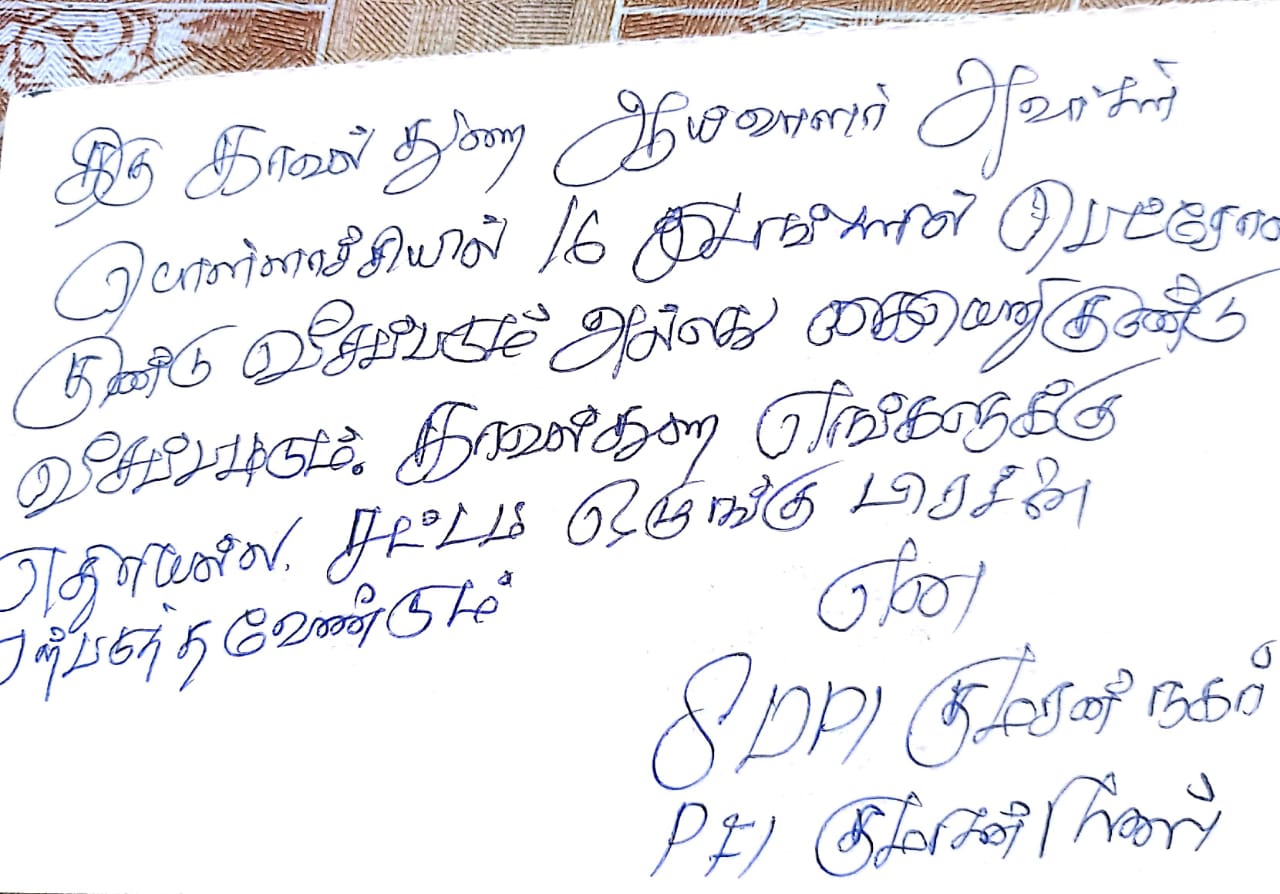 திரு காவல் துறை ஆய்வாளர் அவர்கள்
பொள்ளாச்சியில் 16 இடங்களில் பெட்ரோல்
குண்டு வீசப்படும் அல்லது கையெறிகுண்டு
வீசப்படும். காவல்துறை எங்களுக்கு
எதிரியல்ல. சட்டம் ஒழுங்கு பிரச்சனை
ஏற்படுத்த வேண்டும்
என
SDPI குமரன் நகர்
PFI குமரன் நகர்